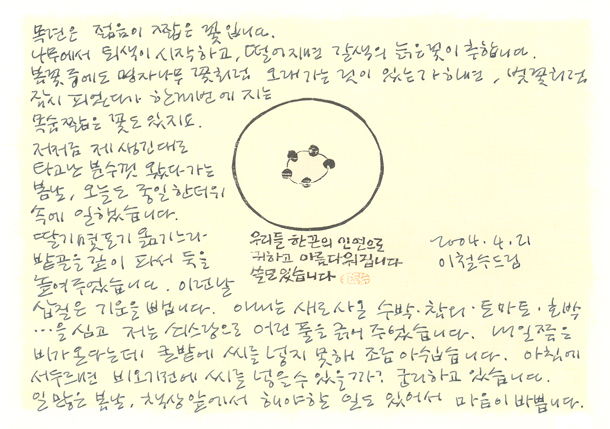 목련은 젊음이 짧은 꽃입니다.
나무에서 퇴색이 시작하고, 떨어지면 갈색의 늙은 꽃이 추합니다.
봄꽃 중에도 명자나무 꽃처럼 오래가는 것이 있는가 하면, 벚꽃처럼
잠시 피었다가 한꺼번에 지는
목숨 짧은 꽃도 있지요.
저저끔 제 생긴대로
타고난 분수껏 왔다 가는
봄날, 오늘도 종일 한더위
속에 일했습니다.
딸기 몇포기 옮기느라
밭골을 깊이 파서 둑을
높여주었습니다. 이런날
삽질은 기운을 뺍니다. 아내는 새로 사온 수박·참외·토마토·호박
…을 심고 저는 쇠스랑으로 어린 풀을 긁어 주었습니다. 내일쯤은
비가 온다는데 콩밭에 씨를 넣지 못해 조금 아쉽습니다. 아침에
서두르면 비오기전에 씨를 넣을 수 있을까? 궁리하고 있습니다.
일 많은 봄날, 책상 앞에서 해야 할 일도 있어서 마음이 바쁩니다.
우리들 한끈의 인연으로
귀하고 아름다워집니다
쓸모있습니다
2004.4.21
이철수드림